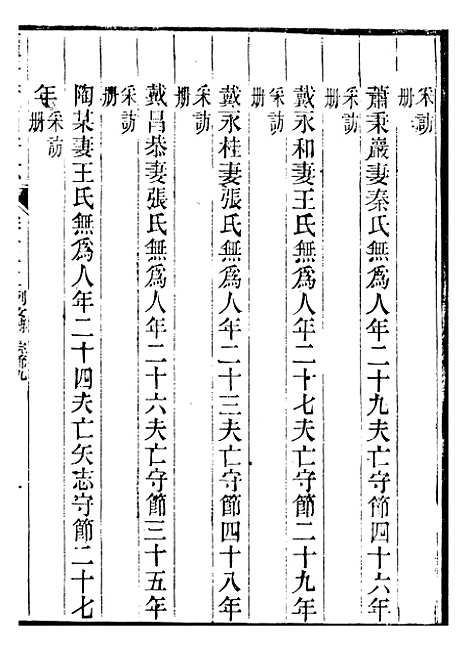 采訪冊
蕭秉巖妻秦氏無爲人年二十九夫亡守節四十六年
采訪冊
戴永和妻王氏無爲人年二十七夫亡守節二十九年
采訪冊
戴永桂妻張氏無爲人年二十三夫亡守節四十八年
采訪冊
戴昌恭妻張氏無爲人年二十六夫亡守節三十五年
采訪冊
陶某妻王氏無爲人年二十四夫亡矢志守節二十七
年采訪冊
列女
節九